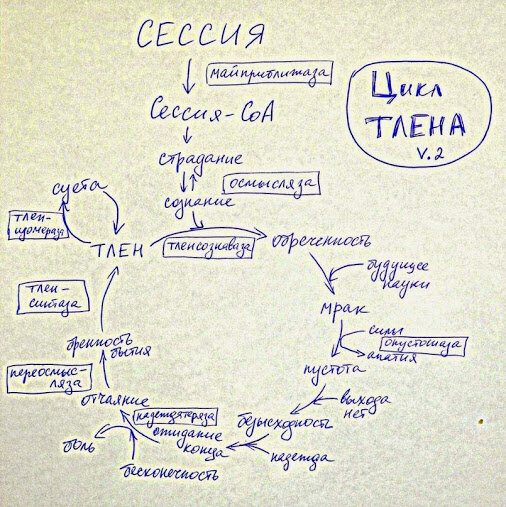 СЕССИЯ
майприближаза
Цикл
ТЛЕНА
v.2
Сессия-CoA
страдание
осмысляза
сознание
суета
тлен-
изомераза
ТЛЕН
тленсознаваза
обреченность
будущее
науки
тлен-
синтаза
мрак
силы
опустошаза
апатия
бренность
бытия
пустота
переосмыс-
ляза
отчаяние
выхода
нет
надеждтеряза
безысходность
ожидание
конца
боль
надежда
бесконечность